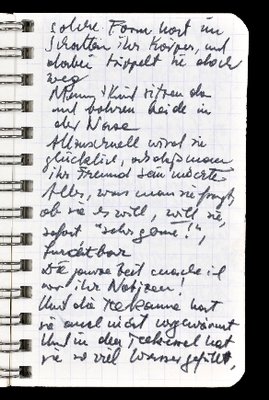 solche Form hat im
Schatten ihr Körper, und
dabei trippelt sie doch
weg
Mann, Kind sitzen da
und bohren beide in
der Nase
Allmanuell wird sie
glücklich, man
ihr Freund sein möchte
Alles, was man sie fragt,
ob sie es will, will sie,
sofort "sehr gerne!",
furchtbar
Die ganze Zeit mache ich
vor ihr Notizen!
Und die Teekanne hat
sie auch nicht vorgewärmt
Und in den hat
sie so viel Wasser gefüllt,